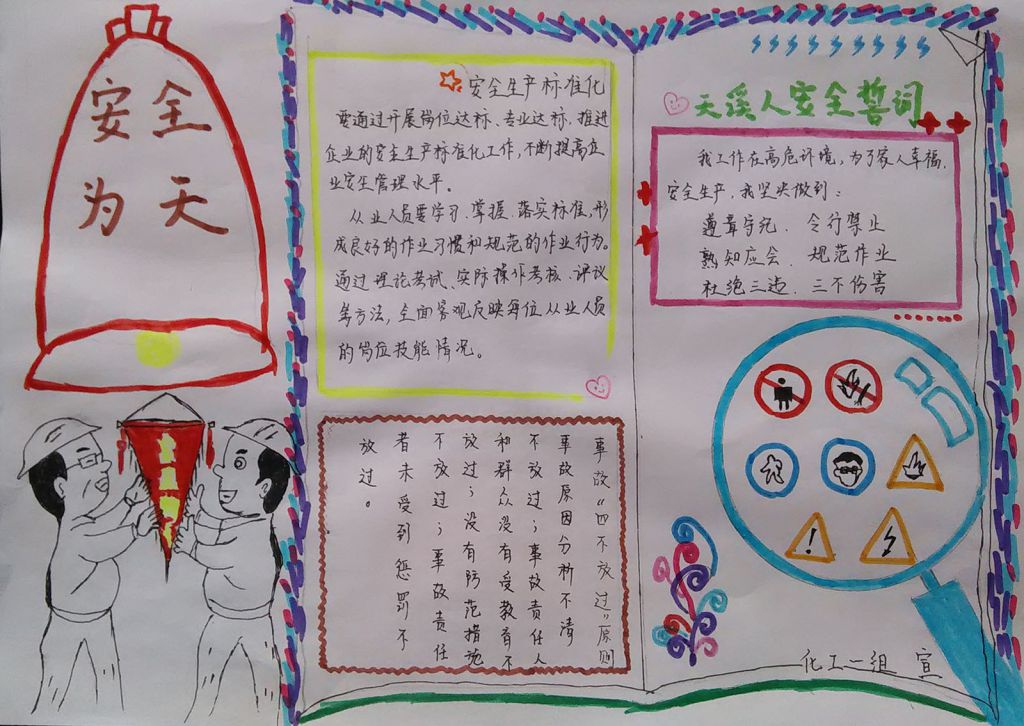 安全
为天
安全生产标准化
要通过开展岗位达标、专业达标,推进
企业的安全生产标准化工作,不断提高企
业安全管理水平。
从业人员要学习、掌握、落实标准,形
成良好的作业习惯和规范的作业行为。
通过理论考试、实际操作考核、评议
等方法,全面客观反映每位从业人员
的岗位技能情况。
事故“四不放过”原则
事故原因分析不清
不放过;事故责任人
和群众没有受教育不
放过;没有防范措施
不放过;事故责任
者未受到惩罚不
放过。
天溪人安全誓词
我工作在高危环境,为了家人幸福,
安全生产,我坚决做到:
遵章守纪、令行禁止
熟知应会、规范作业
杜绝三违、三不伤害
化工一组 宣